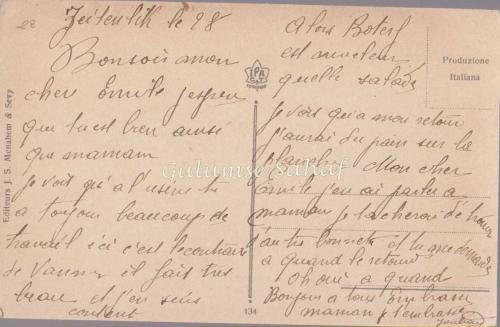 22
Zeitenlik le 28
Bonsoir mon
cher Emile j'espère
que tu est bien ainsi
que maman
Je vois qu'a l'usine tu
a toujour beaucoup de
travail ici c'est le contraire
de Vannes il fait tres
beau et j'en suis
content
Alors Boterf
est
quelle salade
Je vois qu'a mon retour
j'aurai du pain sur la
planche Mon cher
Emile j'en ai parler a
maman je tacherai de trouver
bonnets et tu me demande
a quand le retour
Oh oui a quand
Bonjour a tous Embrasse
maman je t'embrasse
Editeurs J. S. Menahem & Sevy
IPA
CT
134
Produzione
Italiana
gulumse sahaf